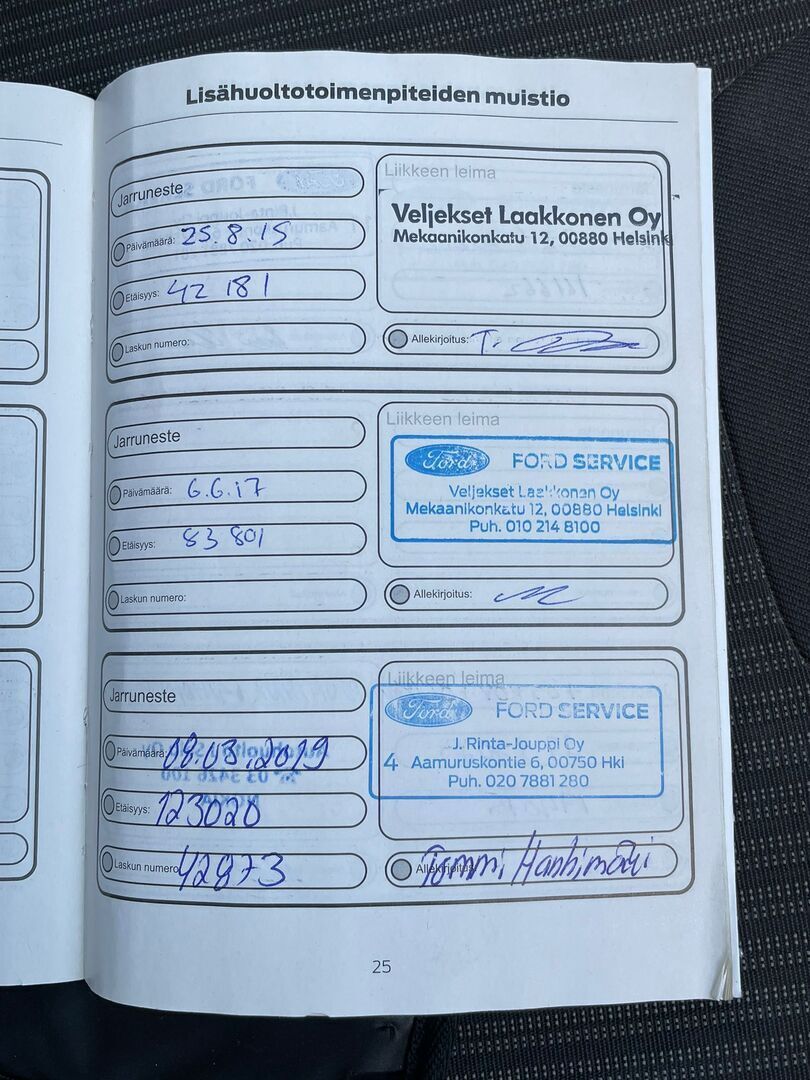 Lisähuoltotoimenpiteiden muistio
Jarruneste
Päivämäärä: 25.8.15
Etäisyys: 42 181
Laskun numero:
Liikkeen leima
Veljekset Laakkonen Oy
Mekaanikonkatu 12, 00880 Helsinki
Allekirjoitus: T.
Jarruneste
Päivämäärä: 6.6.17
Etäisyys: 83 801
Laskun numero:
Liikkeen leima
Ford FORD SERVICE
Veljekset Laakkonen Oy
Mekaanikonkatu 12, 00880 Helsinki
Puh. 010 214 8100
Allekirjoitus:
Jarruneste
Päivämäärä: 08.03.2019
Etäisyys: 123020
Laskun numero: 42873
Liikkeen leima
Ford FORD SERVICE
J. Rinta-Jouppi Oy
4 Aamuruskontie 6, 00750 Hki
Puh. 020 7881 280
Allekirjoitus: Tommi
25